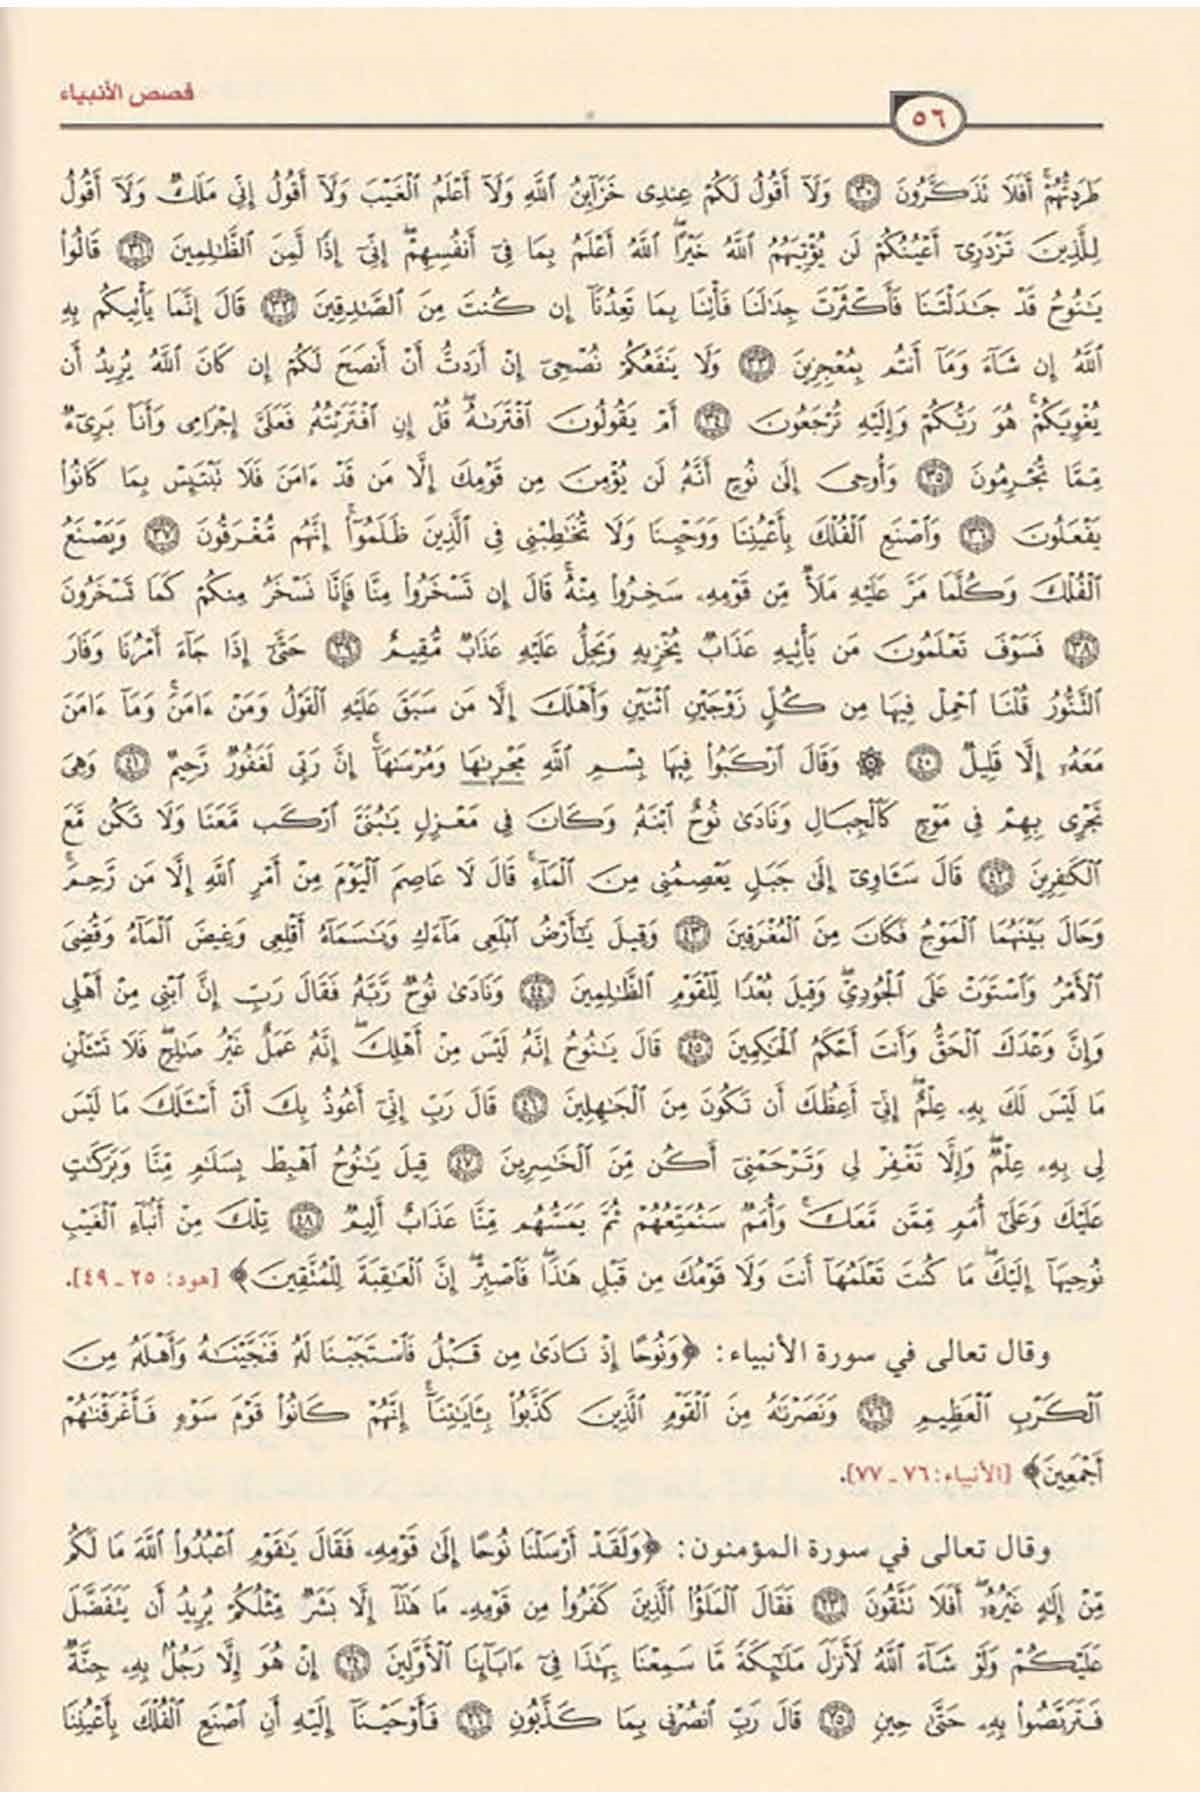 قصص الأنبياء
٥٦
طَرَدتُّهُمْ ۚ أَفَلَا تَذَكَّرُونَ ﴿٣٠﴾ وَلَآ أَقُولُ لَكُمْ عِندِى خَزَآئِنُ ٱللَّهِ وَلَآ أَعْلَمُ ٱلْغَيْبَ وَلَآ أَقُولُ إِنِّى مَلَكٌ وَلَآ أَقُولُ
لِلَّذِينَ تَزْدَرِىٓ أَعْيُنُكُمْ لَن يُؤْتِيَهُمُ ٱللَّهُ خَيْرًا ۖ ٱللَّهُ أَعْلَمُ بِمَا فِىٓ أَنفُسِهِمْ ۖ إِنِّىٓ إِذًا لَّمِنَ ٱلظَّٰلِمِينَ ﴿٣١﴾ قَالُوا۟
يَٰنُوحُ قَدْ جَٰدَلْتَنَا فَأَكْثَرْتَ جِدَٰلَنَا فَأْتِنَا بِمَا تَعِدُنَآ إِن كُنتَ مِنَ ٱلصَّٰدِقِينَ ﴿٣٢﴾ قَالَ إِنَّمَا يَأْتِيكُم بِهِ
ٱللَّهُ إِن شَآءَ وَمَآ أَنتُم بِمُعْجِزِينَ ﴿٣٣﴾ وَلَا يَنفَعُكُمْ نُصْحِىٓ إِنْ أَرَدتُّ أَنْ أَنصَحَ لَكُمْ إِن كَانَ ٱللَّهُ يُرِيدُ أَن
يُغْوِيَكُمْ ۚ هُوَ رَبُّكُمْ وَإِلَيْهِ تُرْجَعُونَ ﴿٣٤﴾ أَمْ يَقُولُونَ ٱفْتَرَىٰهُ ۖ قُلْ إِنِ ٱفْتَرَيْتُهُۥ فَعَلَىَّ إِجْرَامِى وَأَنَا۠ بَرِىٓءٌ
مِّمَّا تُجْرِمُونَ ﴿٣٥﴾ وَأُوحِىَ إِلَىٰ نُوحٍ أَنَّهُۥ لَن يُؤْمِنَ مِن قَوْمِكَ إِلَّا مَن قَدْ ءَامَنَ فَلَا تَبْتَئِسْ بِمَا كَانُوا۟
يَفْعَلُونَ ﴿٣٦﴾ وَٱصْنَعِ ٱلْفُلْكَ بِأَعْيُنِنَا وَوَحْيِنَا وَلَا تُخَٰطِبْنِى فِى ٱلَّذِينَ ظَلَمُوٓا۟ ۚ إِنَّهُم مُّغْرَقُونَ ﴿٣٧﴾ وَيَصْنَعُ
ٱلْفُلْكَ وَكُلَّمَا مَرَّ عَلَيْهِ مَلَأٌ مِّن قَوْمِهِۦ سَخِرُوا۟ مِنْهُ ۚ قَالَ إِن تَسْخَرُوا۟ مِنَّا فَإِنَّا نَسْخَرُ مِنكُمْ كَمَا تَسْخَرُونَ
﴿٣٨﴾ فَسَوْفَ تَعْلَمُونَ مَن يَأْتِيهِ عَذَابٌ يُخْزِيهِ وَيَحِلُّ عَلَيْهِ عَذَابٌ مُّقِيمٌ ﴿٣٩﴾ حَتَّىٰٓ إِذَا جَآءَ أَمْرُنَا وَفَارَ
ٱلتَّنُّورُ قُلْنَا ٱحْمِلْ فِيهَا مِن كُلٍّ زَوْجَيْنِ ٱثْنَيْنِ وَأَهْلَكَ إِلَّا مَن سَبَقَ عَلَيْهِ ٱلْقَوْلُ وَمَنْ ءَامَنَ ۚ وَمَآ ءَامَنَ
مَعَهُۥٓ إِلَّا قَلِيلٌ ﴿٤٠﴾ ۞ وَقَالَ ٱرْكَبُوا۟ فِيهَا بِسْمِ ٱللَّهِ مَجْر۪ىٰهَا وَمُرْسَىٰهَآ ۚ إِنَّ رَبِّى لَغَفُورٌ رَّحِيمٌ ﴿٤١﴾ وَهِىَ
تَجْرِى بِهِمْ فِى مَوْجٍ كَٱلْجِبَالِ وَنَادَىٰ نُوحٌ ٱبْنَهُۥ وَكَانَ فِى مَعْزِلٍ يَٰبُنَىَّ ٱرْكَب مَّعَنَا وَلَا تَكُن مَّعَ
ٱلْكَٰفِرِينَ ﴿٤٢﴾ قَالَ سَـَٔاوِىٓ إِلَىٰ جَبَلٍ يَعْصِمُنِى مِنَ ٱلْمَآءِ ۚ قَالَ لَا عَاصِمَ ٱلْيَوْمَ مِنْ أَمْرِ ٱللَّهِ إِلَّا مَن رَّحِمَ ۚ
وَحَالَ بَيْنَهُمَا ٱلْمَوْجُ فَكَانَ مِنَ ٱلْمُغْرَقِينَ ﴿٤٣﴾ وَقِيلَ يَٰٓأَرْضُ ٱبْلَعِى مَآءَكِ وَيَٰسَمَآءُ أَقْلِعِى وَغِيضَ ٱلْمَآءُ وَقُضِىَ
ٱلْأَمْرُ وَٱسْتَوَتْ عَلَى ٱلْجُودِىِّ ۖ وَقِيلَ بُعْدًا لِّلْقَوْمِ ٱلظَّٰلِمِينَ ﴿٤٤﴾ وَنَادَىٰ نُوحٌ رَّبَّهُۥ فَقَالَ رَبِّ إِنَّ ٱبْنِى مِنْ أَهْلِى
وَإِنَّ وَعْدَكَ ٱلْحَقُّ وَأَنتَ أَحْكَمُ ٱلْحَٰكِمِينَ ﴿٤٥﴾ قَالَ يَٰنُوحُ إِنَّهُۥ لَيْسَ مِنْ أَهْلِكَ ۖ إِنَّهُۥ عَمَلٌ غَيْرُ صَٰلِحٍ ۖ فَلَا تَسْـَٔلْنِ
مَا لَيْسَ لَكَ بِهِۦ عِلْمٌ ۖ إِنِّىٓ أَعِظُكَ أَن تَكُونَ مِنَ ٱلْجَٰهِلِينَ ﴿٤٦﴾ قَالَ رَبِّ إِنِّىٓ أَعُوذُ بِكَ أَنْ أَسْـَٔلَكَ مَا لَيْسَ
لِى بِهِۦ عِلْمٌ ۖ وَإِلَّا تَغْفِرْ لِى وَتَرْحَمْنِىٓ أَكُن مِّنَ ٱلْخَٰسِرِينَ ﴿٤٧﴾ قِيلَ يَٰنُوحُ ٱهْبِطْ بِسَلَٰمٍ مِّنَّا وَبَرَكَٰتٍ
عَلَيْكَ وَعَلَىٰٓ أُمَمٍ مِّمَّن مَّعَكَ ۚ وَأُمَمٌ سَنُمَتِّعُهُمْ ثُمَّ يَمَسُّهُم مِّنَّا عَذَابٌ أَلِيمٌ ﴿٤٨﴾ تِلْكَ مِنْ أَنۢبَآءِ ٱلْغَيْبِ
نُوحِيهَآ إِلَيْكَ ۖ مَا كُنتَ تَعْلَمُهَآ أَنتَ وَلَا قَوْمُكَ مِن قَبْلِ هَٰذَا ۖ فَٱصْبِرْ ۖ إِنَّ ٱلْعَٰقِبَةَ لِلْمُتَّقِينَ﴾ [هود: ٢٥ - ٤٩].
وقال تعالى في سورة الأنبياء: ﴿وَنُوحًا إِذْ نَادَىٰ مِن قَبْلُ فَٱسْتَجَبْنَا لَهُۥ فَنَجَّيْنَٰهُ وَأَهْلَهُۥ مِنَ
ٱلْكَرْبِ ٱلْعَظِيمِ ﴿٧٦﴾ وَنَصَرْنَٰهُ مِنَ ٱلْقَوْمِ ٱلَّذِينَ كَذَّبُوا۟ بِـَٔايَٰتِنَآ ۚ إِنَّهُمْ كَانُوا۟ قَوْمَ سَوْءٍ فَأَغْرَقْنَٰهُمْ
أَجْمَعِينَ﴾ [الأنبياء: ٧٦ - ٧٧].
وقال تعالى في سورة المؤمنون: ﴿وَلَقَدْ أَرْسَلْنَا نُوحًا إِلَىٰ قَوْمِهِۦ فَقَالَ يَٰقَوْمِ ٱعْبُدُوا۟ ٱللَّهَ مَا لَكُم
مِّنْ إِلَٰهٍ غَيْرُهُۥٓ ۖ أَفَلَا تَتَّقُونَ ﴿٢٣﴾ فَقَالَ ٱلْمَلَؤُا۟ ٱلَّذِينَ كَفَرُوا۟ مِن قَوْمِهِۦ مَا هَٰذَآ إِلَّا بَشَرٌ مِّثْلُكُمْ يُرِيدُ أَن يَتَفَضَّلَ
عَلَيْكُمْ وَلَوْ شَآءَ ٱللَّهُ لَأَنزَلَ مَلَٰٓئِكَةً مَّا سَمِعْنَا بِهَٰذَا فِىٓ ءَابَآئِنَا ٱلْأَوَّلِينَ ﴿٢٤﴾ إِنْ هُوَ إِلَّا رَجُلٌۢ بِهِۦ جِنَّةٌ
فَتَرَبَّصُوا۟ بِهِۦ حَتَّىٰ حِينٍ ﴿٢٥﴾ قَالَ رَبِّ ٱنصُرْنِى بِمَا كَذَّبُونِ ﴿٢٦﴾ فَأَوْحَيْنَآ إِلَيْهِ أَنِ ٱصْنَعِ ٱلْفُلْكَ بِأَعْيُنِنَا